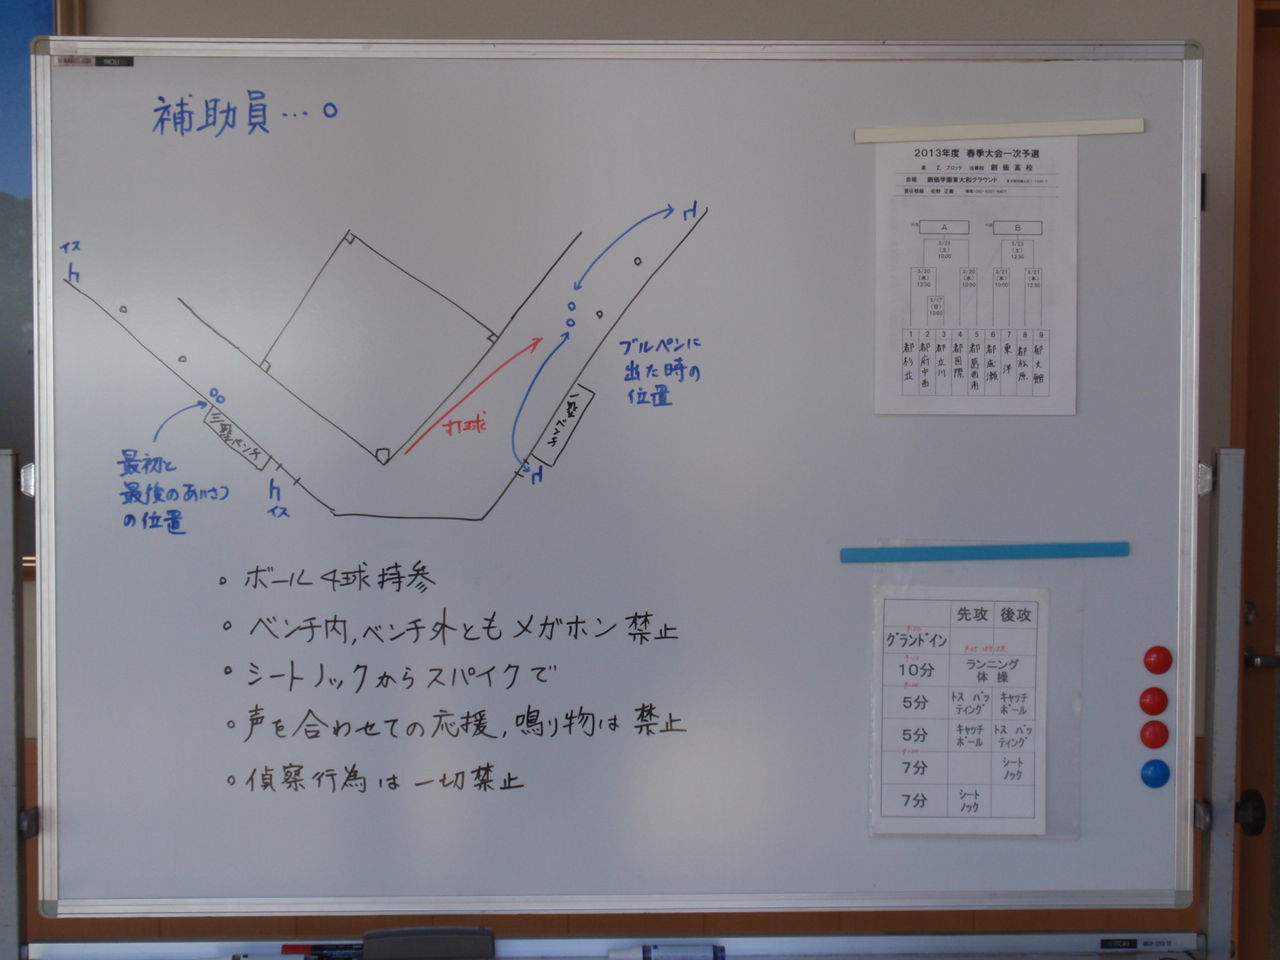 補助員…○
イス
ブルペンに
出た時の
位置
一塁ベンチ
打球
三塁ベンチ
最初と
最後のあいさつ
の位置
イス
○ ボール4球持参
○ ベンチ内,ベンチ外ともメガホン禁止
○ シートノックからスパイクで
○ 声を合わせての応援,鳴り物は禁止
○ 偵察行為は一切禁止
2013年度 春季大会一次予選
創価高校
会場 創価学園東大和グラウンド
A B
3/23 3/23
(土) (土)
10:00 12:30
3/20 3/20 3/21 3/21
12:30 10:00 10:00 12:30
3/17
(日)
10:00
1 2 3 4 5 6 7 8 9
都杉並 都府中西 都立川 都国際 都葛西南 都成瀬 東洋 都松原 都大館
先攻 後攻
グランドイン
10分 ランニング
体操
5分 トス バッティング キャッチボール
5分 キャッチボール トス バッティング
7分 シートノック
7分 シートノック